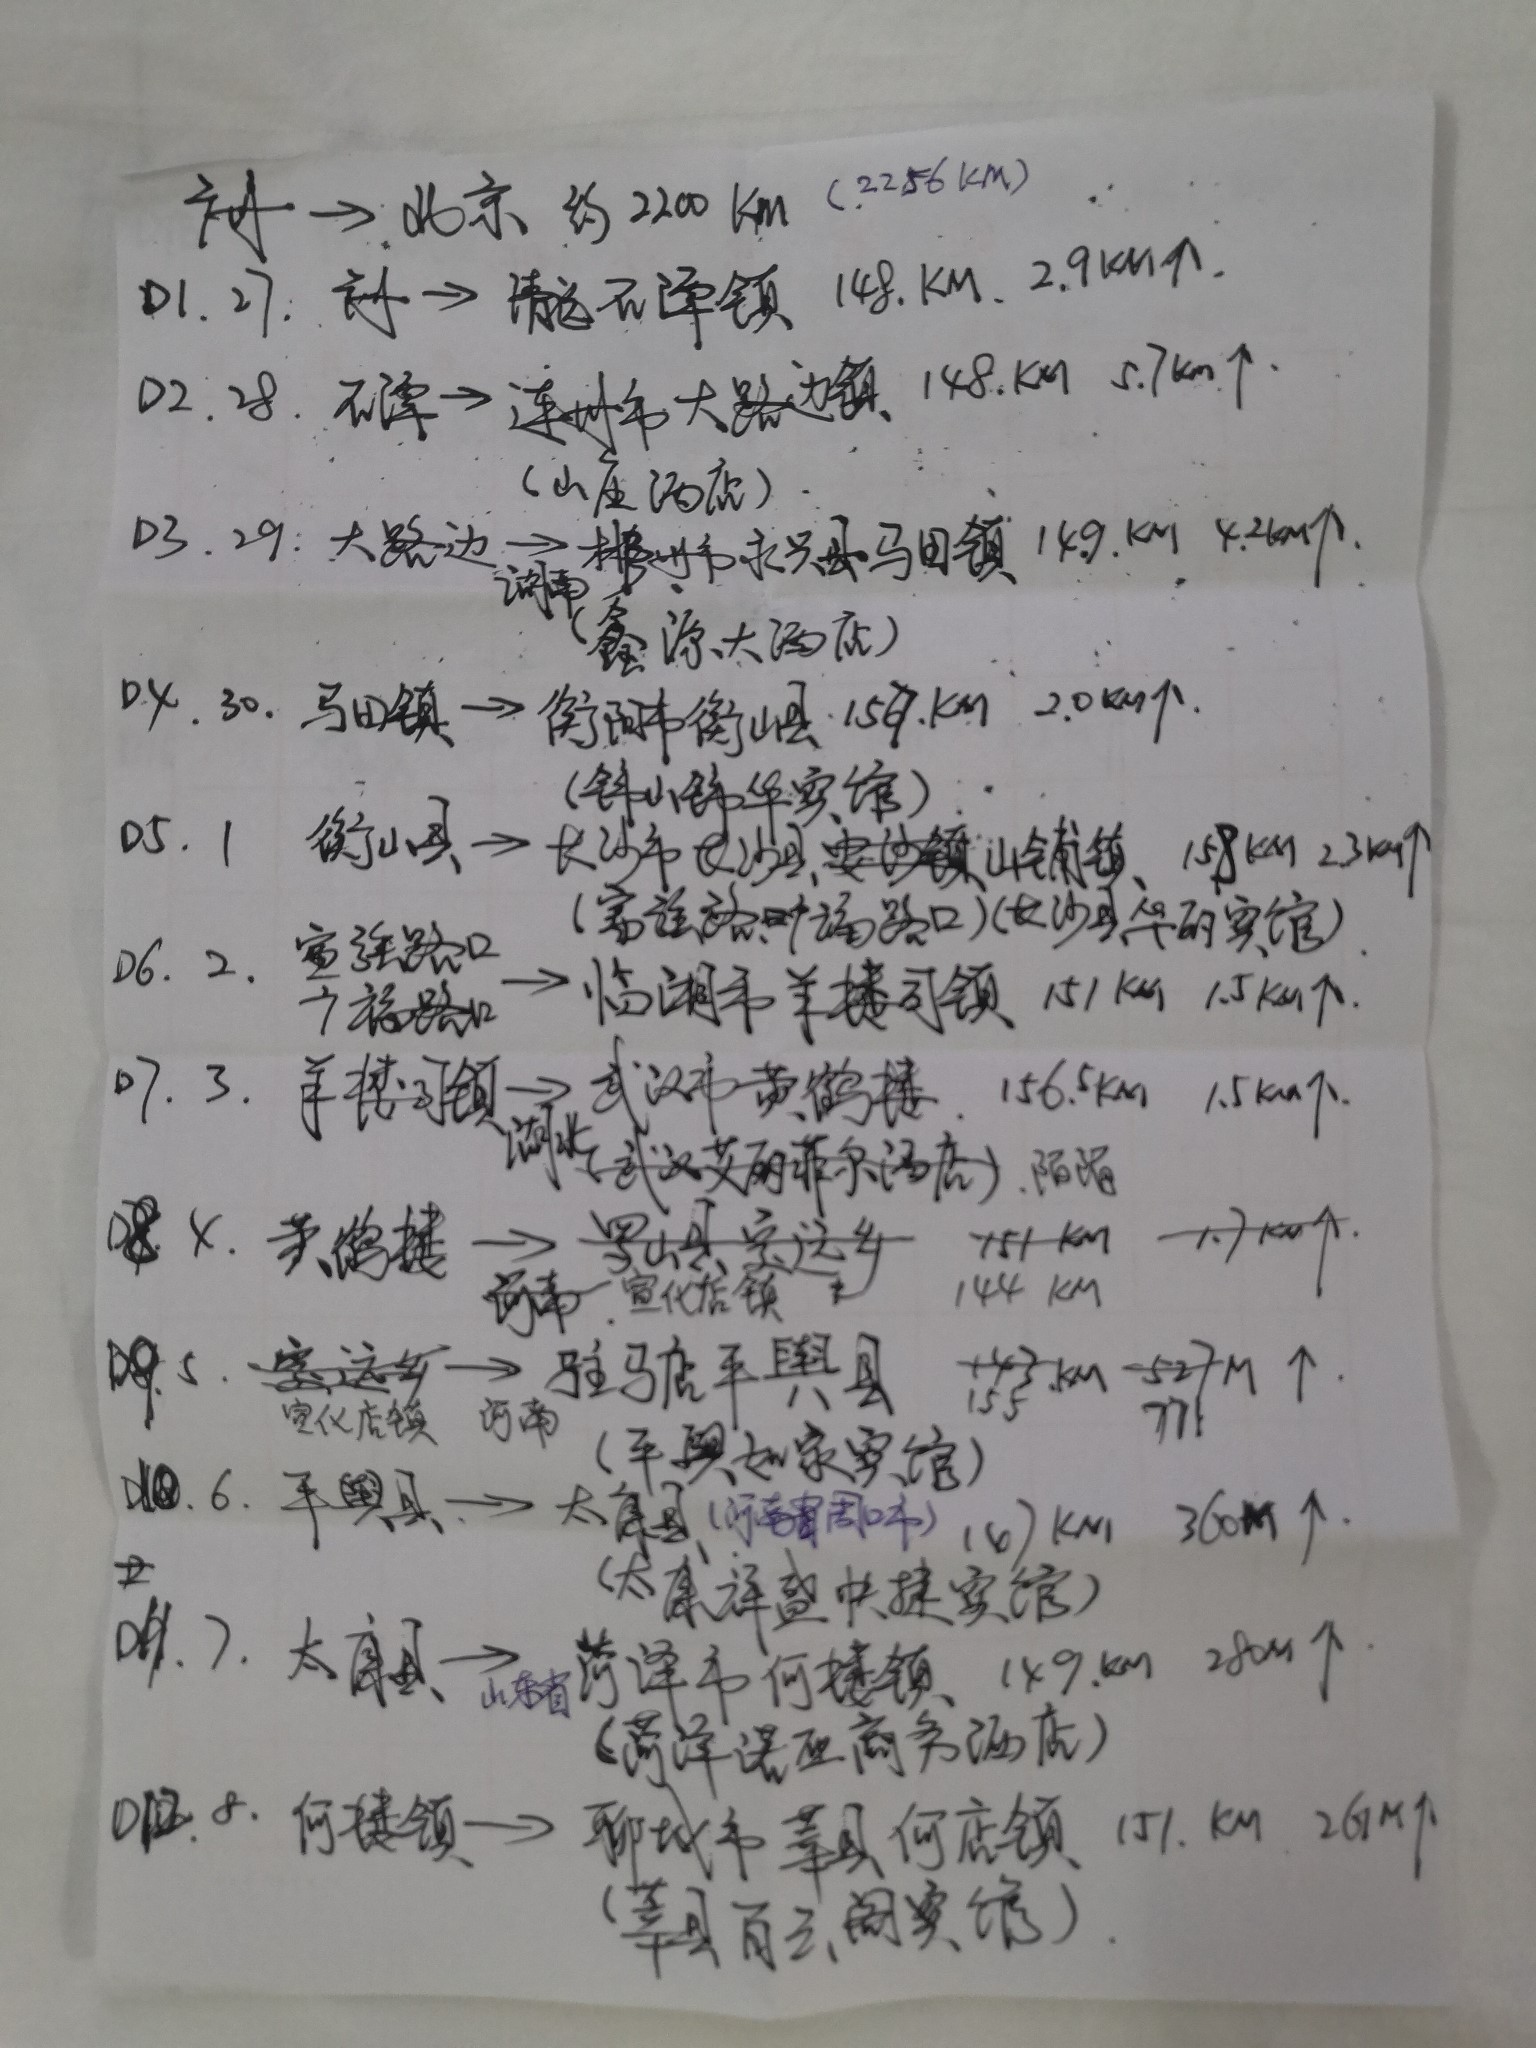 → 北京 约2200KM (2256KM)
D1.27. → 清远石潭镇 148.KM. 2.9KM↑.
D2.28. 石潭→连州市大路边镇 148.KM 5.7km↑.
(山庄酒店).
D3.29: 大路边→郴州市永兴县马田镇 149.KM 4.2km↑.
湖南
(鑫源大酒店)
D4.30. 马田镇→衡阳市衡山县 .KM 2.0KM↑.
(锦华宾馆).
D5.1 衡山县→长沙市长沙县安沙镇山铺镇 158KM 23KM↑
(路口)(长沙县华丽宾馆).
D6.2. 路口
路口 → 临湘市羊楼司镇 151KM 1.5KM↑.
D7.3. 羊楼司镇→武汉市黄鹤楼. 156.5KM 1.5KM↑.
湖北 (武汉艾丽菲尔酒店).陌陌
D8 4. 黄鹤楼→罗山县定远乡 151KM 1.7KM↑.
河南.宣化店镇 144 KM
D9.5. 定远乡→驻马店平舆县 143.KM 527M↑.
宣化店镇 河南 155 771
(平舆如家宾馆)
D10.6. 平舆县→太康县(河南省周口市) 167KM 360M↑.
(太康祥盛快捷宾馆)
D11.7. 太康县→菏泽市何楼镇 149.KM 280M↑.
山东省
(菏泽诺亚商务酒店)
D12.8. 何楼镇→聊城市莘县何店镇 151.KM 261M↑
(莘县百云阁宾馆).